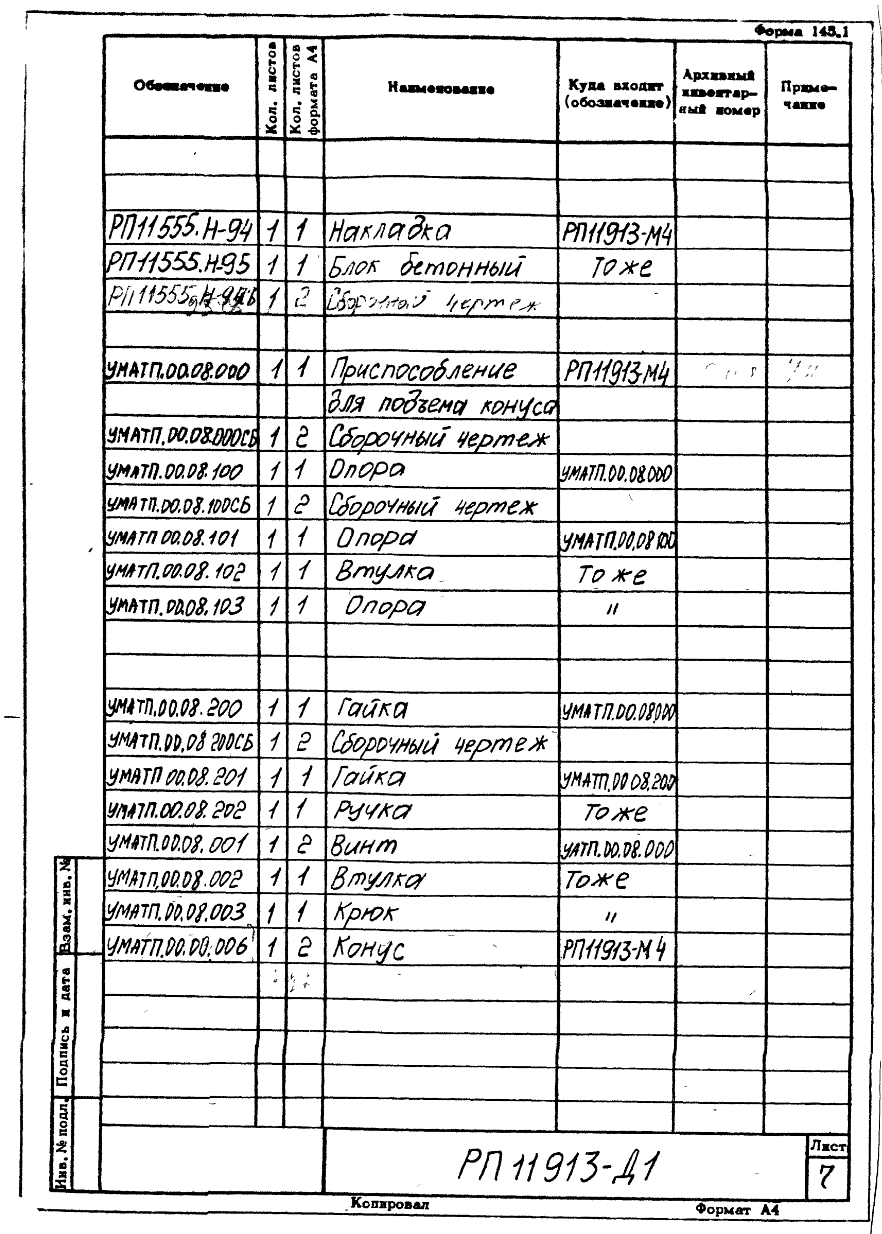 Форма 145.1
Обозначение | Кол. листов | Кол. листов формата А4 | Наименование | Куда входит (обозначение) | Архивный инвентарный номер | Примечание
РП11555.Н-94 1 1 Накладка РП11913-М4
РП11555.Н-95 1 1 Блок бетонный То же
РП11555 1 2 Сборочный чертеж
УМАТП.00.08.000 1 1 Приспособление РП11913-М4
для подъема конуса
УМАТП.00.08.000СБ 1 2 Сборочный чертеж
УМАТП.00.08.100 1 1 Опора УМАТП.00.08.000
УМАТП.00.08.100СБ 1 2 Сборочный чертеж
УМАТП 00.08.101 1 1 Опора УМАТП.00.08 100
УМАТП.00.08.102 1 1 Втулка То же
УМАТП.00.08.103 1 1 Опора "
УМАТП.00.08.200 1 1 Гайка УМАТП.00.08000
УМАТП.00.08 200СБ 1 2 Сборочный чертеж
УМАТП 00.08.201 1 1 Гайка УМАТП.00 08.200
УМАТП.00.08.202 1 1 Ручка То же
УМАТП.00.08.001 1 2 Винт УАТП.00.08.000
УМАТП.00.08.002 1 1 Втулка То же
УМАТП.00.08.003 1 1 Крюк "
УМАТП.00.00.006 1 2 Конус РП11913-М4
Взам. инв. №
Подпись и дата
Инв. № подл.
РП 11913-Д1
Лист
7
Копировал Формат А4